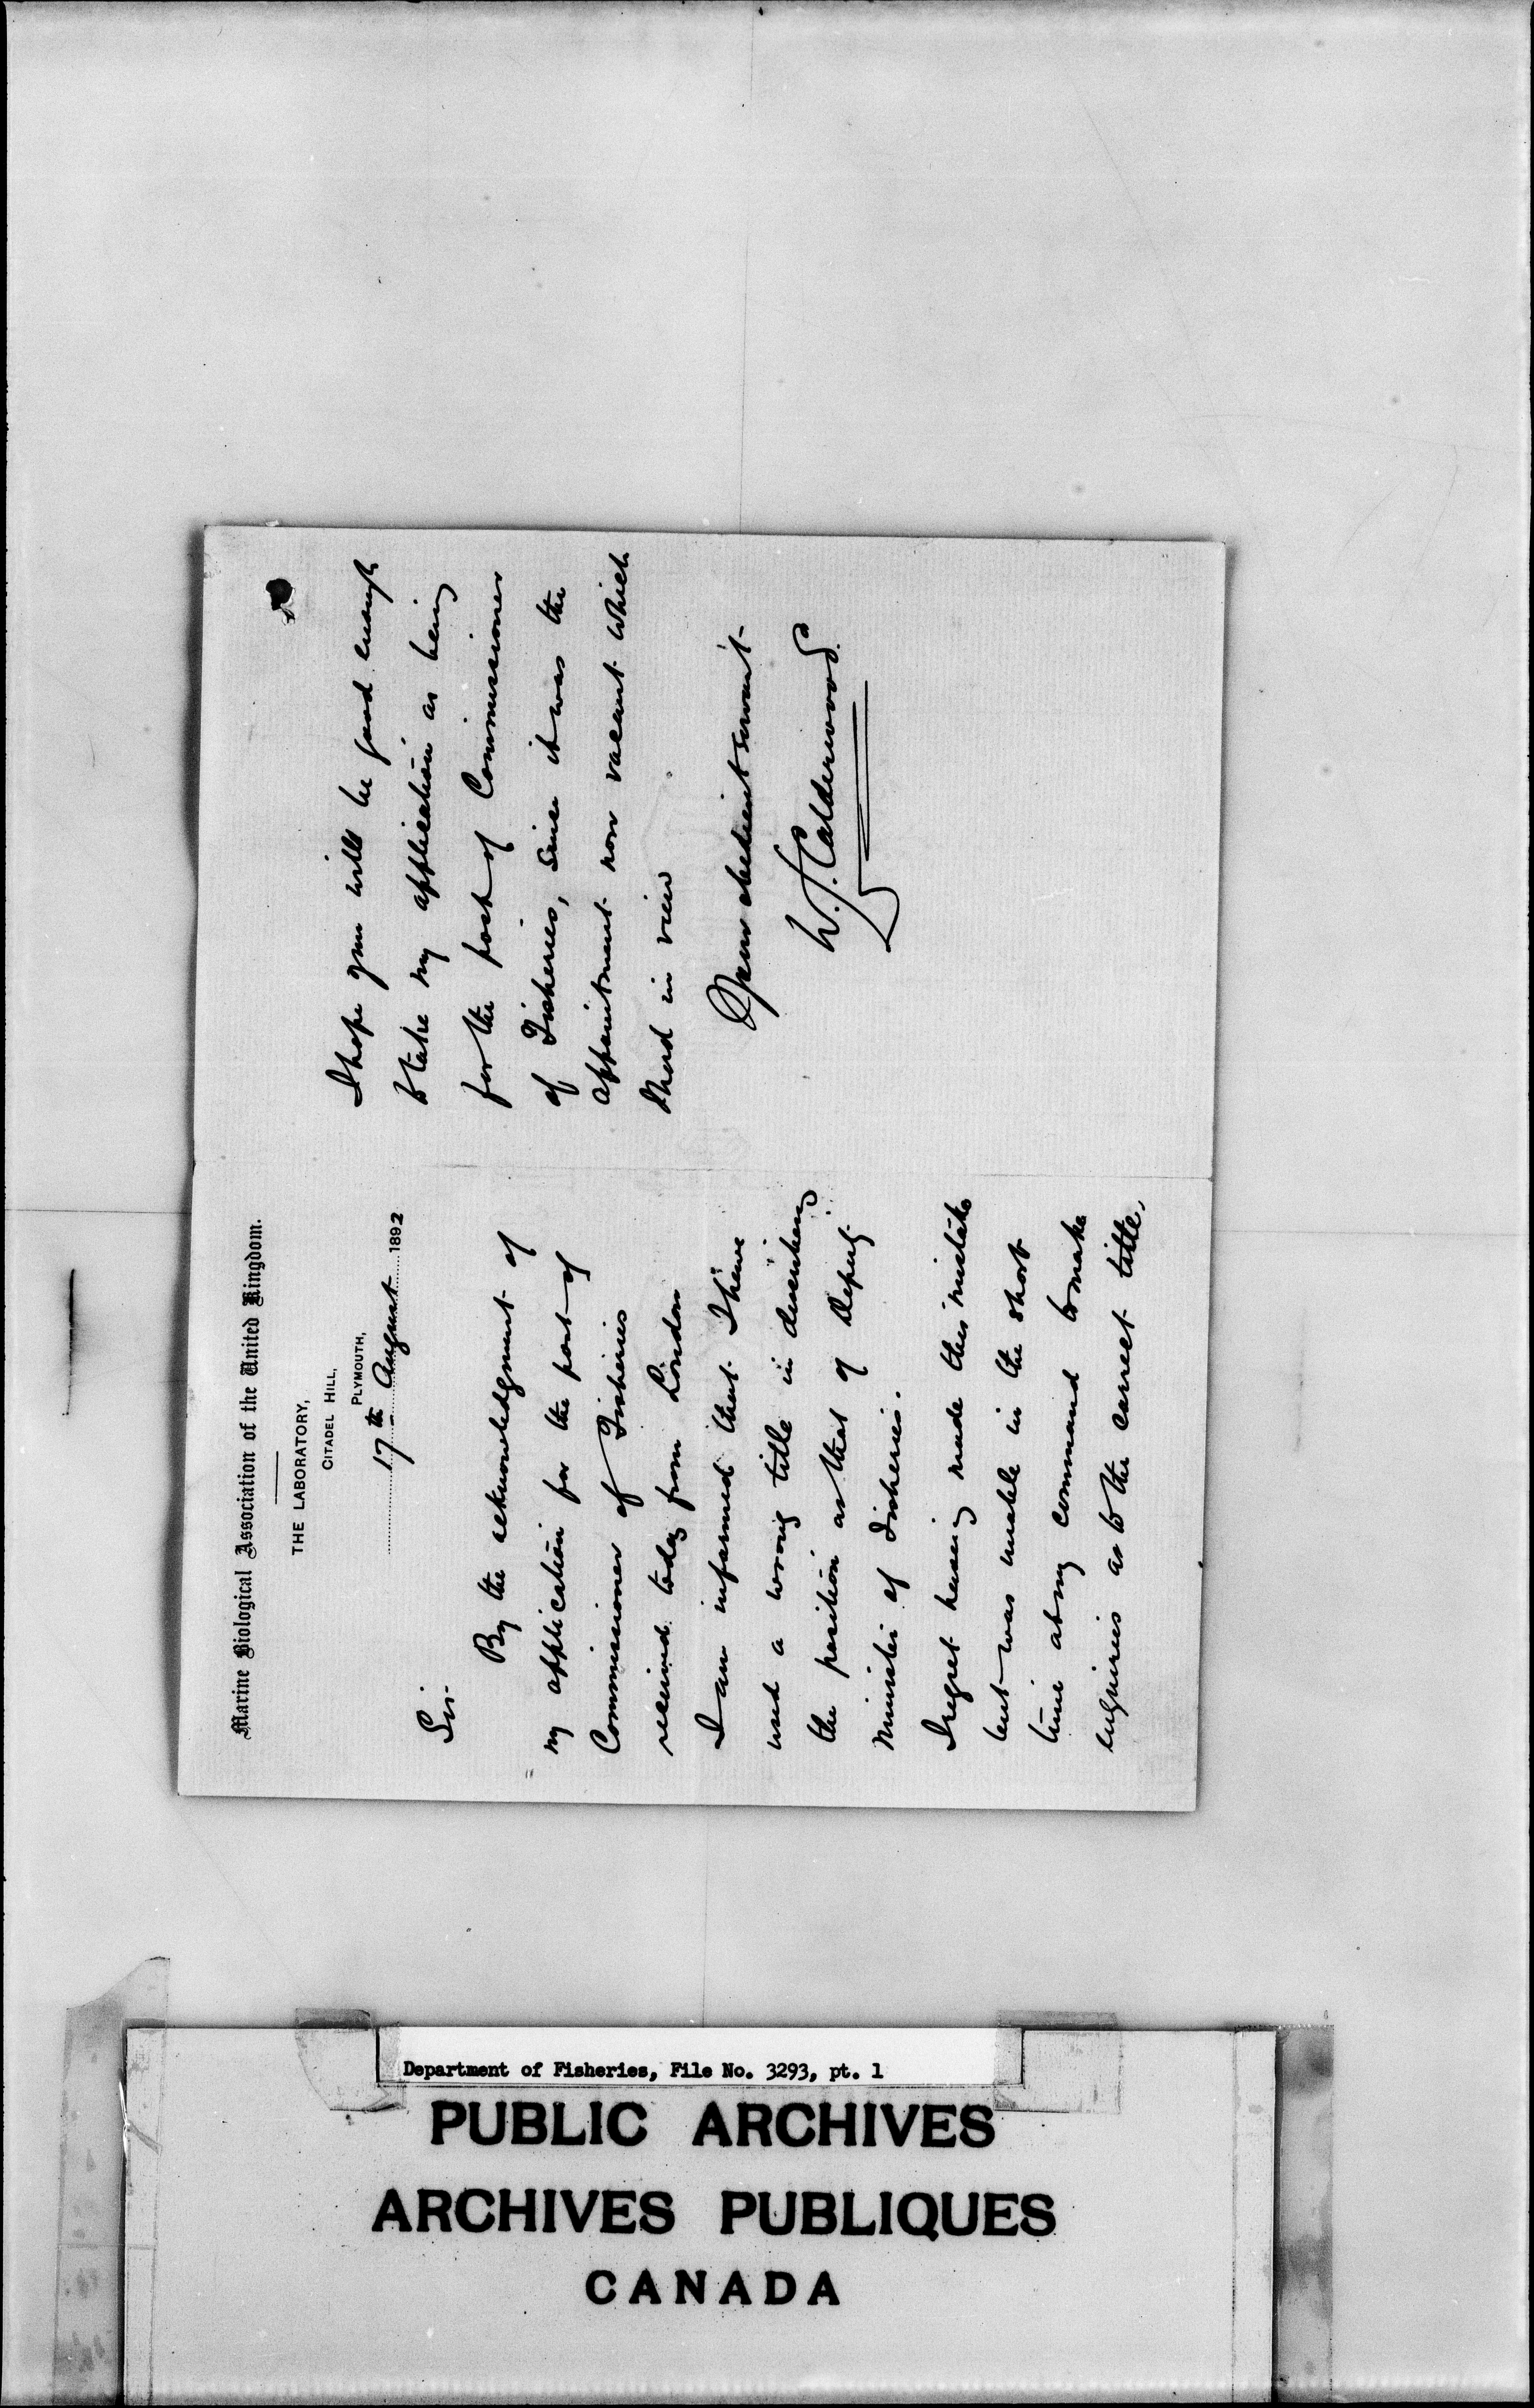 Marine Biological Association of the United Kingdom.
THE LABORATORY,
CITADEL HILL,
PLYMOUTH,
17th August 1892
Sir
By the acknowledgment of
my application for the post of
Commissioner of Fisheries
received today from London
I am informed that I have
used a wrong title in describing
the position as that of Deputy
Minister of Fisheries.
I regret having made this mistake
but was unable in the short
time at my command to make
enquiries as to the correct title.
I hope you will be good enough
to take my application as being
for the post of Commissioner
of Fisheries, since it was the
appointment now vacant which
I had in view
Your obedient servant
W. J. Calderwood.
Department of Fisheries, File No. 3293, pt. 1
PUBLIC ARCHIVES
ARCHIVES PUBLIQUES
CANADA